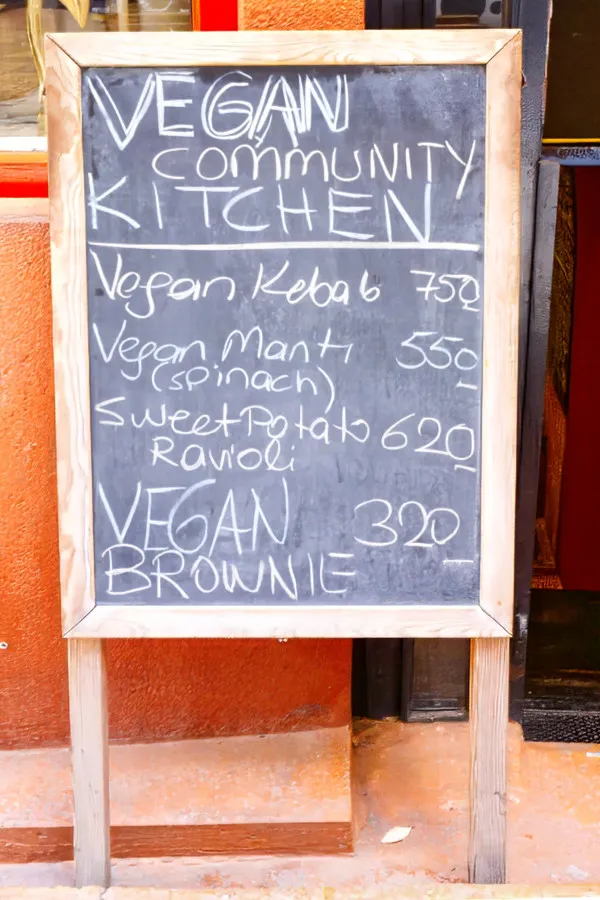 VEGAN
COMMUNITY
KITCHEN
Vegan Kebab 750
Vegan Manti 550
(spinach)
Sweet Potato 620
Ravioli
VEGAN 320
BROWNIE